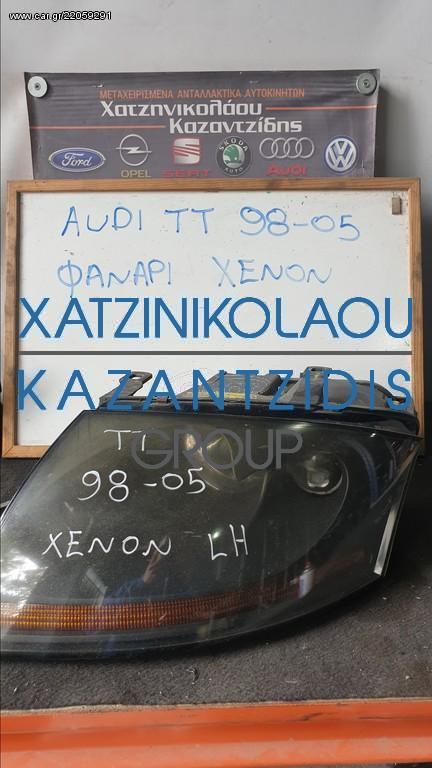 www.car.gr/22059291
ΜΕΤΑΧΕΙΡΙΣΜΕΝΑ ΑΝΤΑΛΛΑΚΤΙΚΑ ΑΥΤΟΚΙΝΗΤΩΝ
Χατζηνικολάου
Καζαντζίδης
Ford
OPEL
SEAT
SKODA
AUTO
Audi
AUDI TT 98-05
ΦΑΝΑΡΙ XENON
XATZINIKOLAOU
KAZANTZIDIS
GROUP
TT
98-05
XENON LH